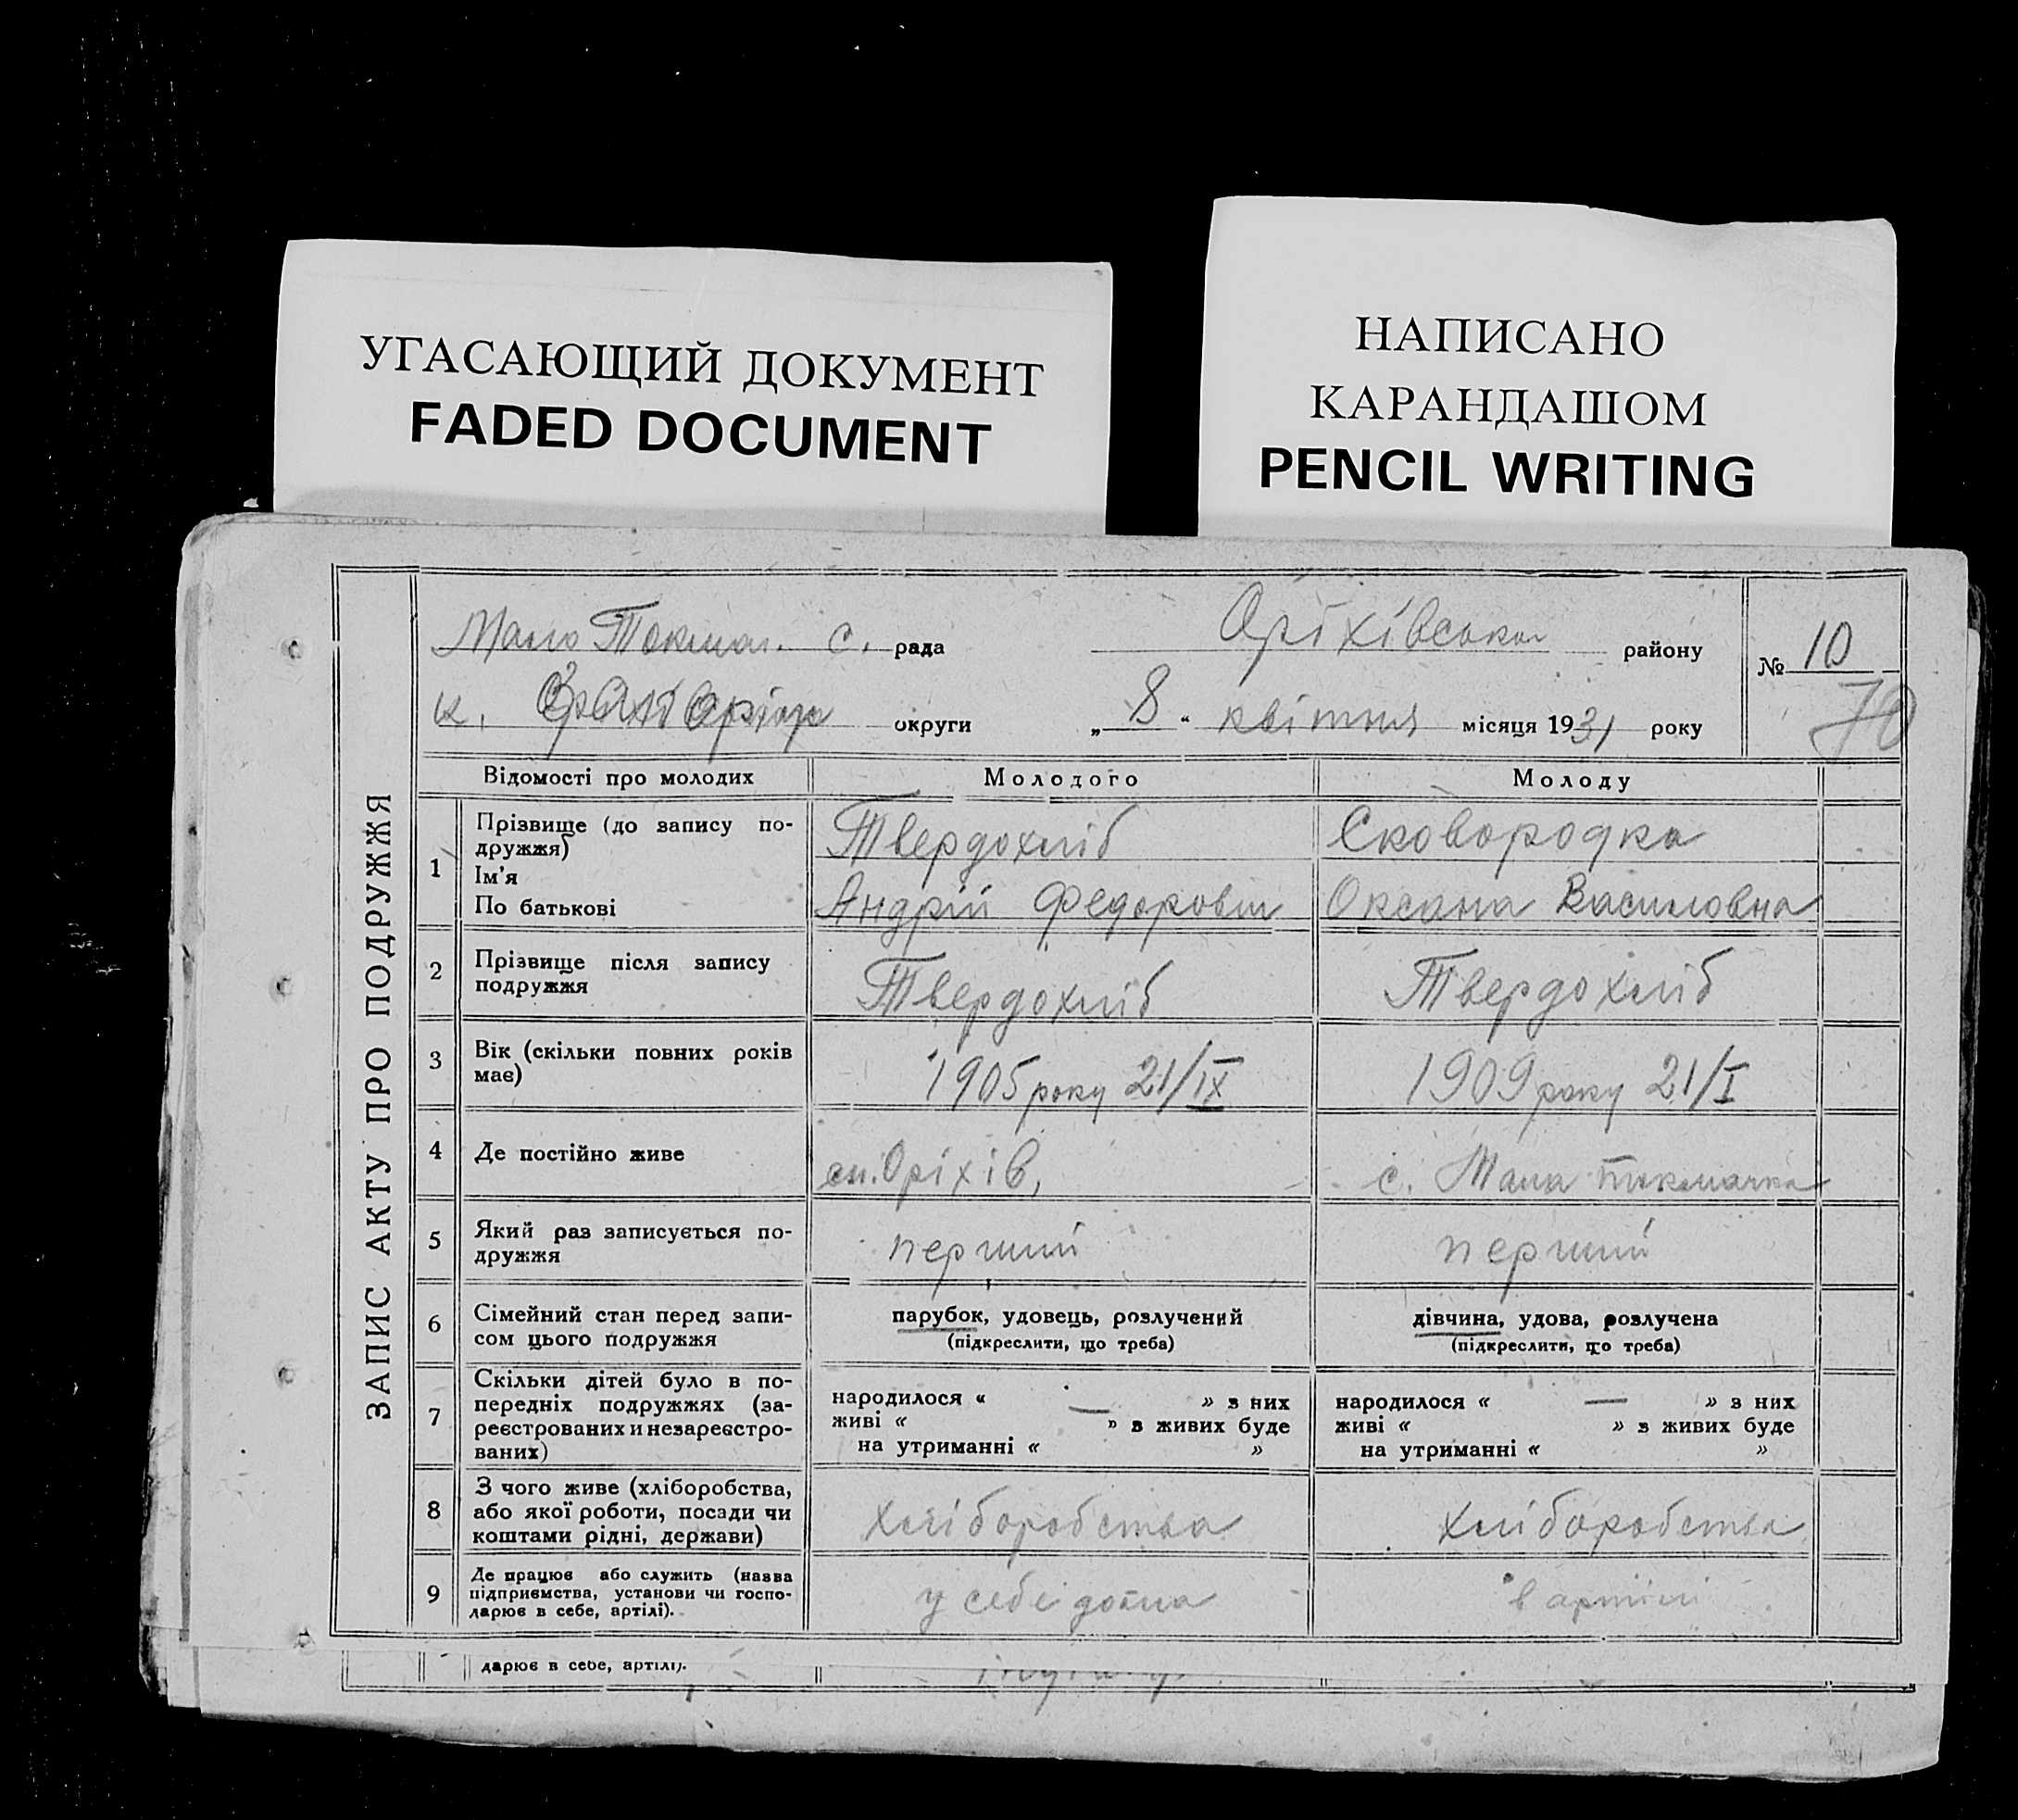 УГАСАЮЩИЙ ДОКУМЕНТ
FADED DOCUMENT
НАПИСАНО
КАРАНДАШОМ
PENCIL WRITING
ЗАПИС АКТУ ПРО ПОДРУЖЖЯ
Мало Токмач. с. рада Оріхівського району № 10
к. округи „ 8 “ квітня місяця 1931 року 70
Відомості про молодих Молодого Молоду
1 Прізвище (до запису по-
дружжя) Твердохліб Сковородка
Ім'я
По батькові Андрій Федорович Оксана Василовна
2 Прізвище після запису
подружжя Твердохліб Твердохліб
3 Вік (скільки повних років
має) 1905 року 21/IX 1909 року 21/I
4 Де постійно живе Оріхів, с. Мала Токмачка
5 Який раз записується по-
дружжя перший перший
6 Сімейний стан перед запи-
сом цього подружжя парубок, удовець, розлучений дівчина, удова, розлучена
(підкреслити, що треба) (підкреслити, що треба)
7 Скільки дітей було в по-
передніх подружжях (за-
реєстрованих и незареєстро-
ваних) народилося « — » з них народилося « — » з них
живі « » з живих буде живі « » з живих буде
на утриманні « » на утриманні « »
8 З чого живе (хліборобства,
або якої роботи, посади чи
коштами рідні, держави) хліборобства хліборобства
9 Де працює або служить (назва
підприємства, установи чи госпо-
дарює в себе, артілі). у себе дома в артілі
дарює в себе, артілі).